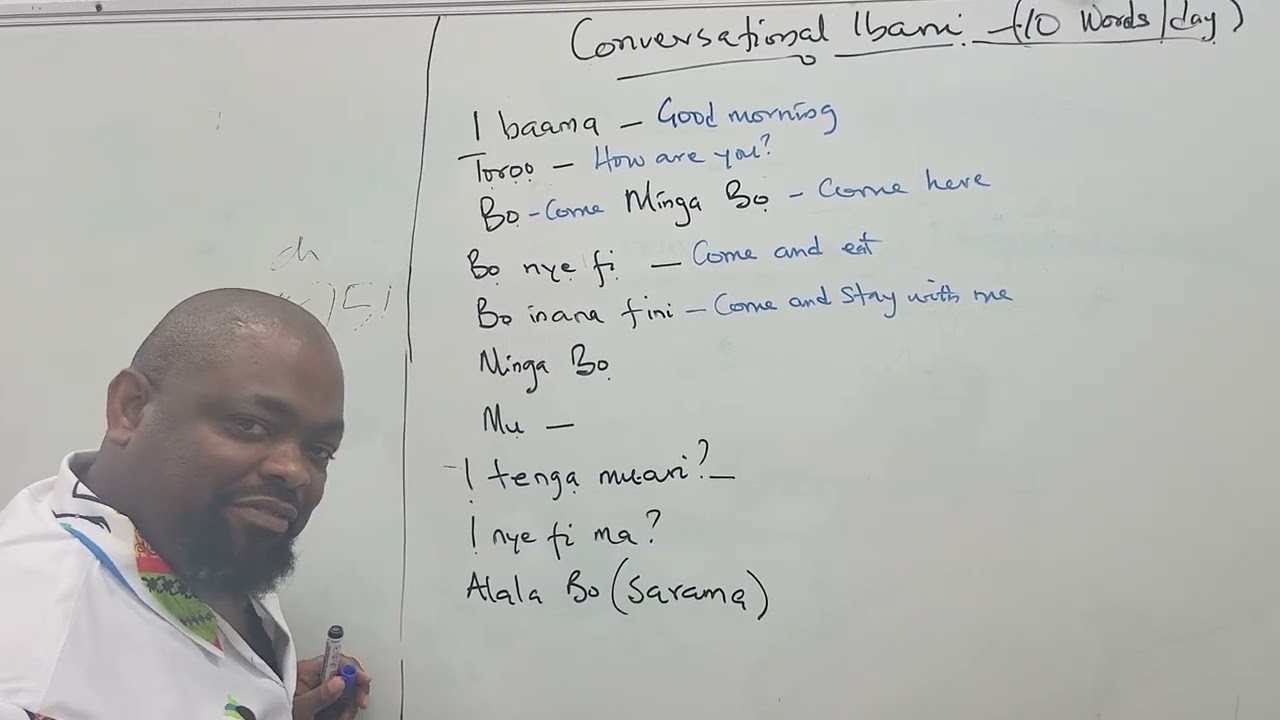 Conversational Ibani - (10 Words/day)
I baama - Good morning
Tọrọọ - How are you?
Bọ - Come Minga Bọ - Come here
Bọ nye fi - Come and eat
Bọ inana fini - Come and Stay with me
Minga Bọ
Mu -
I tenga muari? -
I nye fi ma?
Alala Bọ (Sarama)